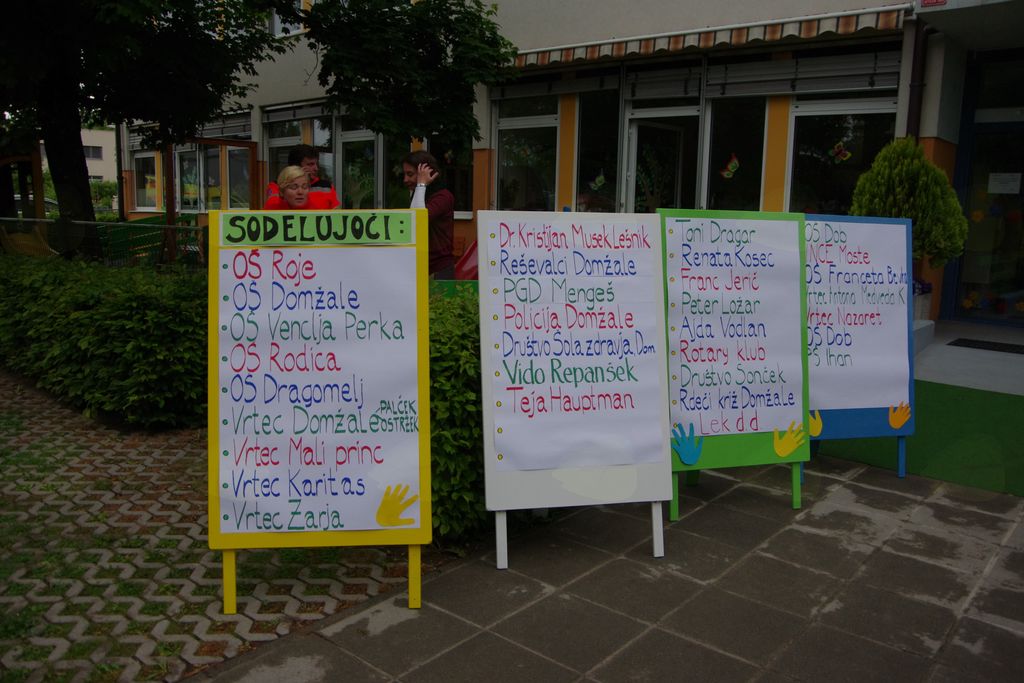 SODELUJOČI:
OŠ Roje
OŠ Domžale
OŠ Venclja Perka
OŠ Rodica
OŠ Dragomelj
Vrtec Domžale PALČEK
OSTRŽEK
Vrtec Mali princ
Vrtec Karitas
Vrtec Zarja
Dr. Kristijan Musek Lešnik
Reševalci Domžale
PGD Mengeš
Policija Domžale
Društvo Šola zdravja Dom
Vido Repanšek
Teja Hauptman
Toni Dragar
Renata Kosec
Franc Jerič
Peter Ložar
Ajda Vodlan
Rotary klub
Društvo Sonček
Rdeči križ Domžale
Lek d d
OŠ Dob
Moste
OŠ Franceta
Vrtec Antona Medveda K
Vrtec Nazaret
OŠ Dob
Ihan